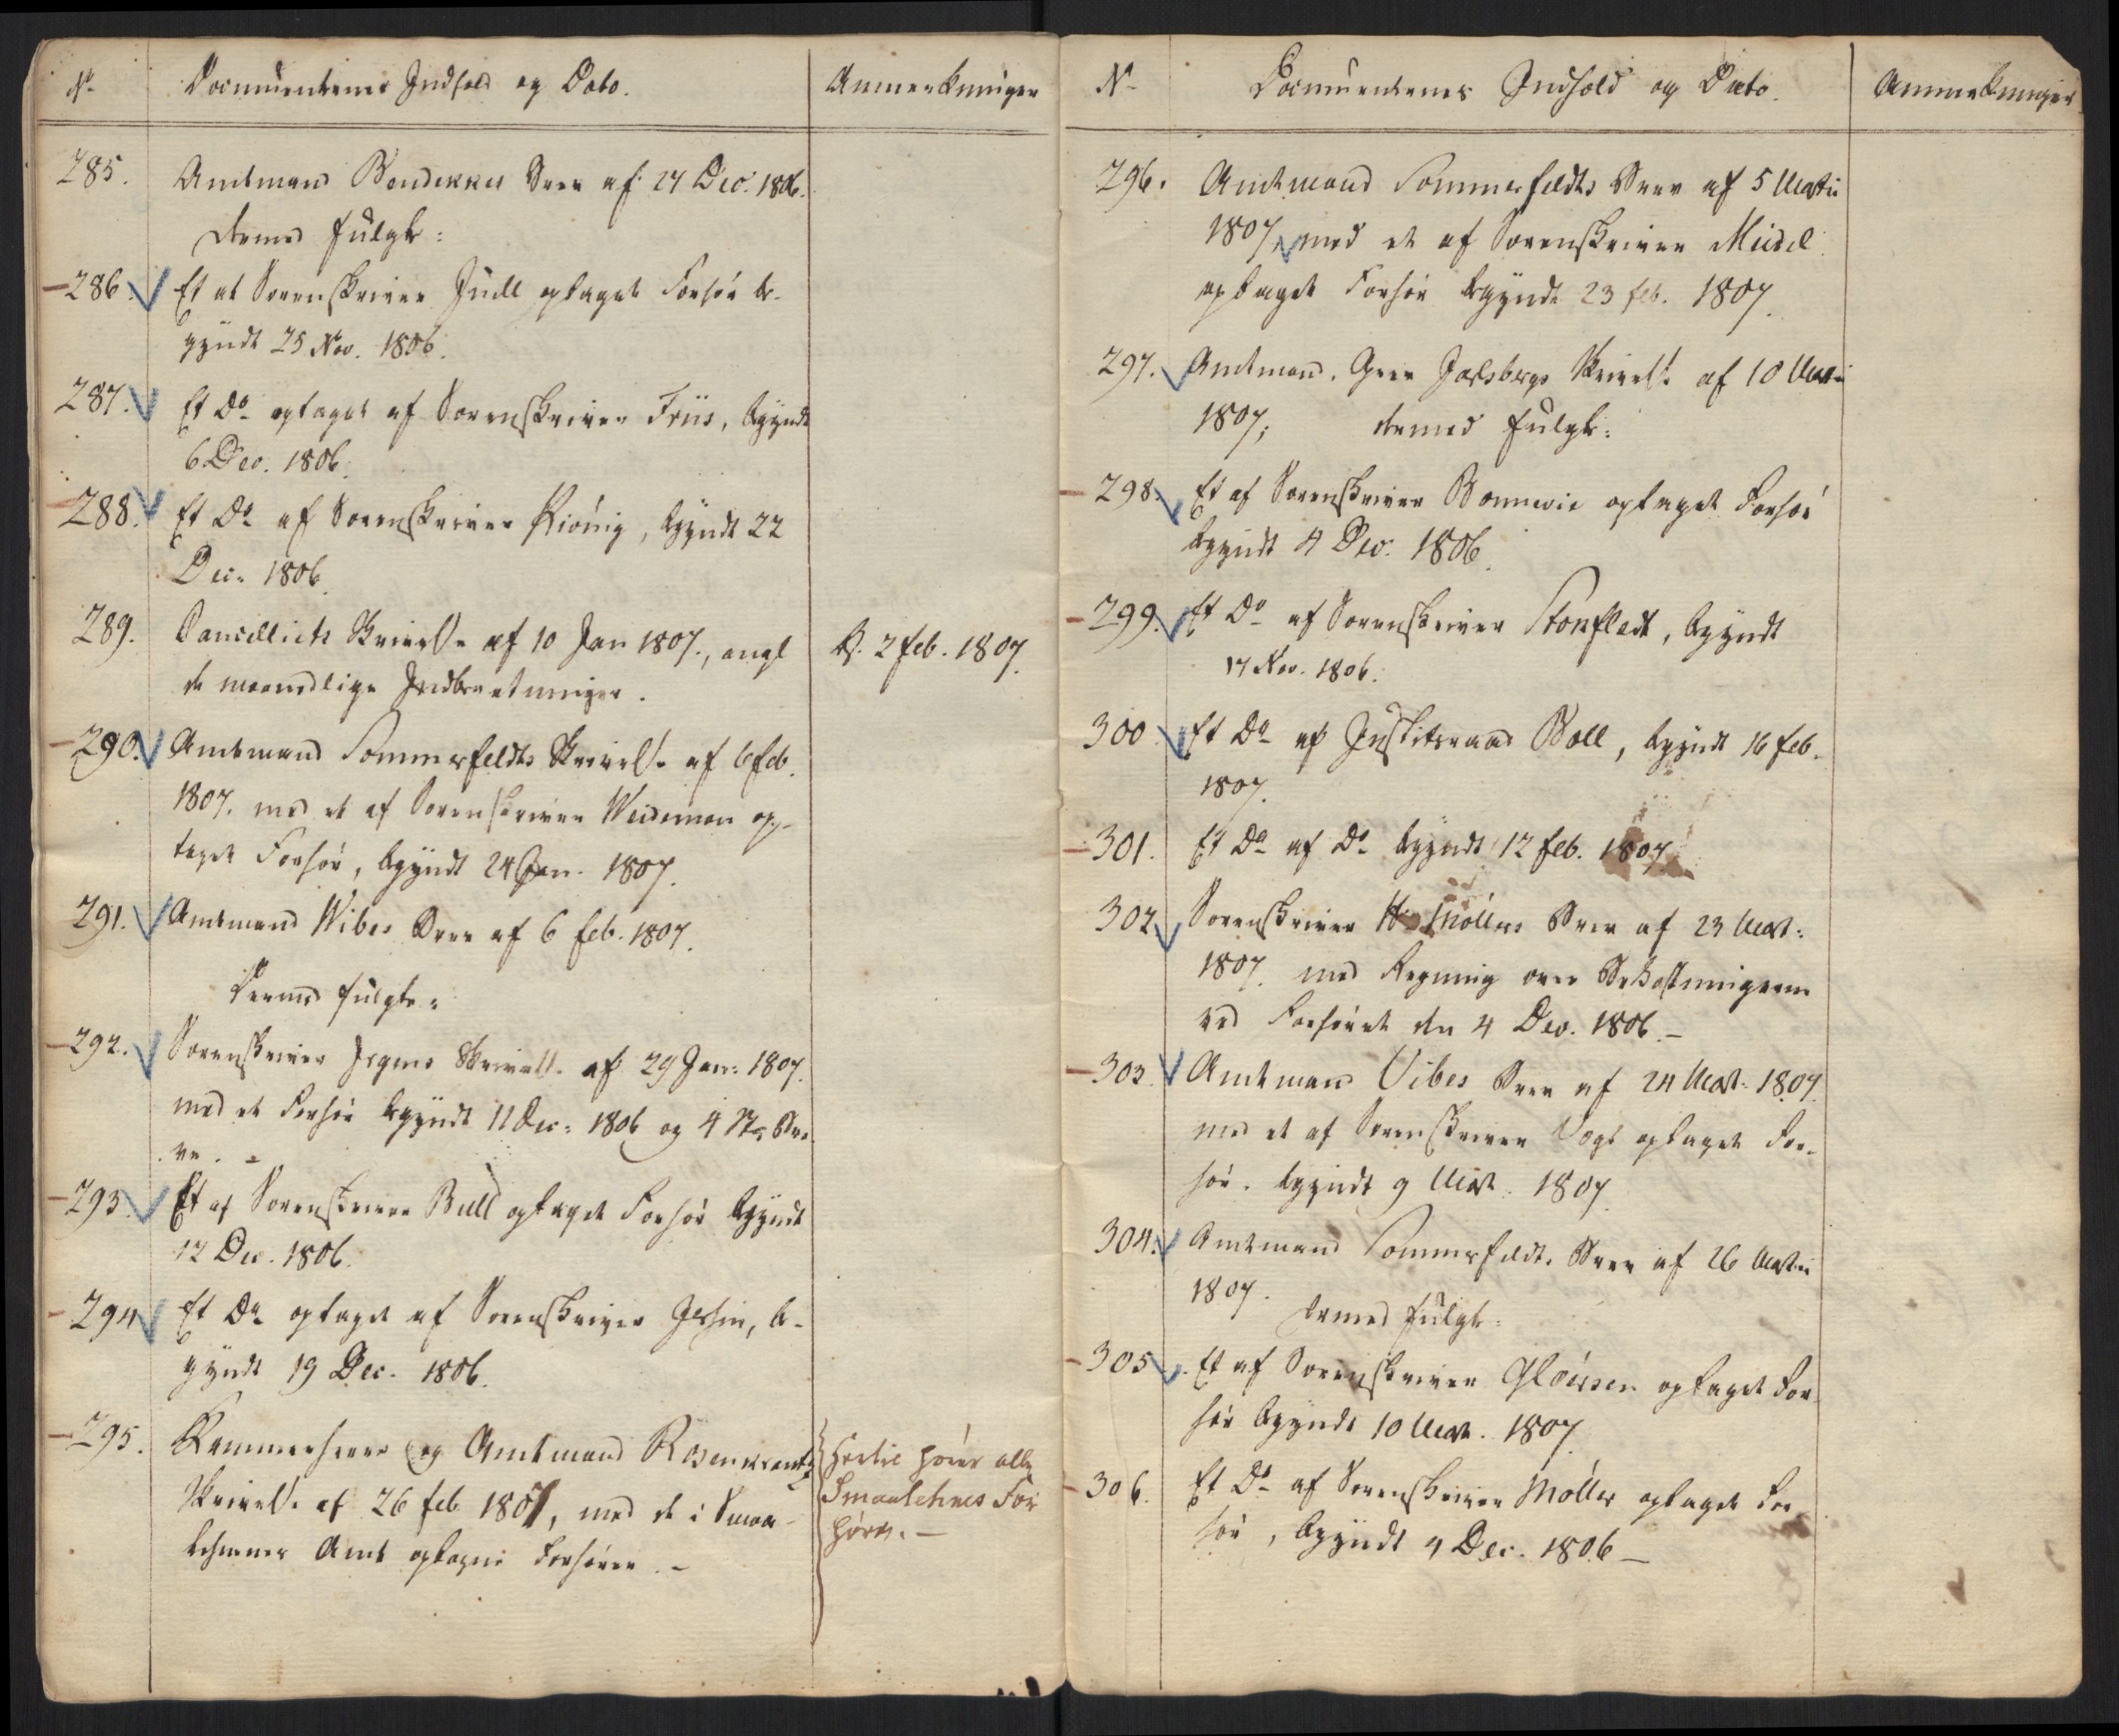 No Documenternes Indhold og Dato. Anmerkninger
285. Amtmand Bendekes Brev af 27 Dec. 1806.
dermed fulgte:
286. Et af Sorenskriver Juell optaget Forhør be-
gyndt 25 Nov. 1806.
287. Et Do optaget af Sorenskriver Friis, begyndt
6 Dec. 1806.
288. Et Do af Sorenskriver Kiönig, begyndt 22
Dec. 1806.
289. Cancelliets Skrivelse af 10 Jan 1807., angl B. 2 feb. 1807.
de maanedlige Indberetninger.
290. Amtmand Sommerfeldts Skrivelse af 6 feb.
1807. med et af Sorenskriver Weideman op-
taget Forhør, begyndt 24 Jan. 1807.
291. Amtmand Wibes Brev af 6 feb. 1807.
Dermed fulgte:
292. Sorenskriver Irgens Skrivelse af 29 Jan: 1807.
med et Forhør begyndt 11 Dec: 1806 og 4 St. Bre-
ve. -
293. Et af Sorenskriver Bull optaget Forhør begyndt
12 Dec. 1806.
294 Et Do optaget af Sorenskriver Jersin, be-
gyndt 19 Dec. 1806.
295. Kammerherre og Amtmand Rosenkrantz Hertil hører alle
Skrivelse af 26 feb 1807, med de i Smaa- Smaalehnes For
lehnenes Amt optagne Forhører. - hører. -
No Documenternes Indhold og Dato. Anmerkninger
296. Amtmand Sommerfeldts Brev af 5 Martii
1807, med et af Sorenskriver
optaget Forhør begyndt 23 feb. 1807.
297. Amtmand, Grev Jarlsbergs Skrivelse af 10 Martii
1807; dermed fulgte:
298. Et af Sorenskriver Bonnevie optaget Forhør
begyndt 4 Dec. 1806.
299. Et Do af Sorenskriver Stoxflædt, begyndt
17 Nov. 1806.
300 Et Do af Justitsraad Boll, begyndt 16 feb.
1807.
301. Et Do af Do begyndt 12 feb. 1807.
302. Sorenskriver Møllers Brev af 23 Mart:
1807. med Regning over Bekostningerne
ved Forhøret den 4 Dec. 1806. -
303. Amtmand Vibes Brev af 24 Mart: 1807.
med et af Sorenskriver Vogt optaget For-
hør. begyndt 9 Mart. 1807.
304. Amtmand Sommerfeldts Brev af 26 Martii
1807.
dermed fulgte:
305. Et af Sorenskriver Gløersen optaget For-
hør begyndt 10 Mart. 1807.
306. Et Do af Sorenskriver Møller optaget For-
hør, begyndt 4 Dec. 1806 -